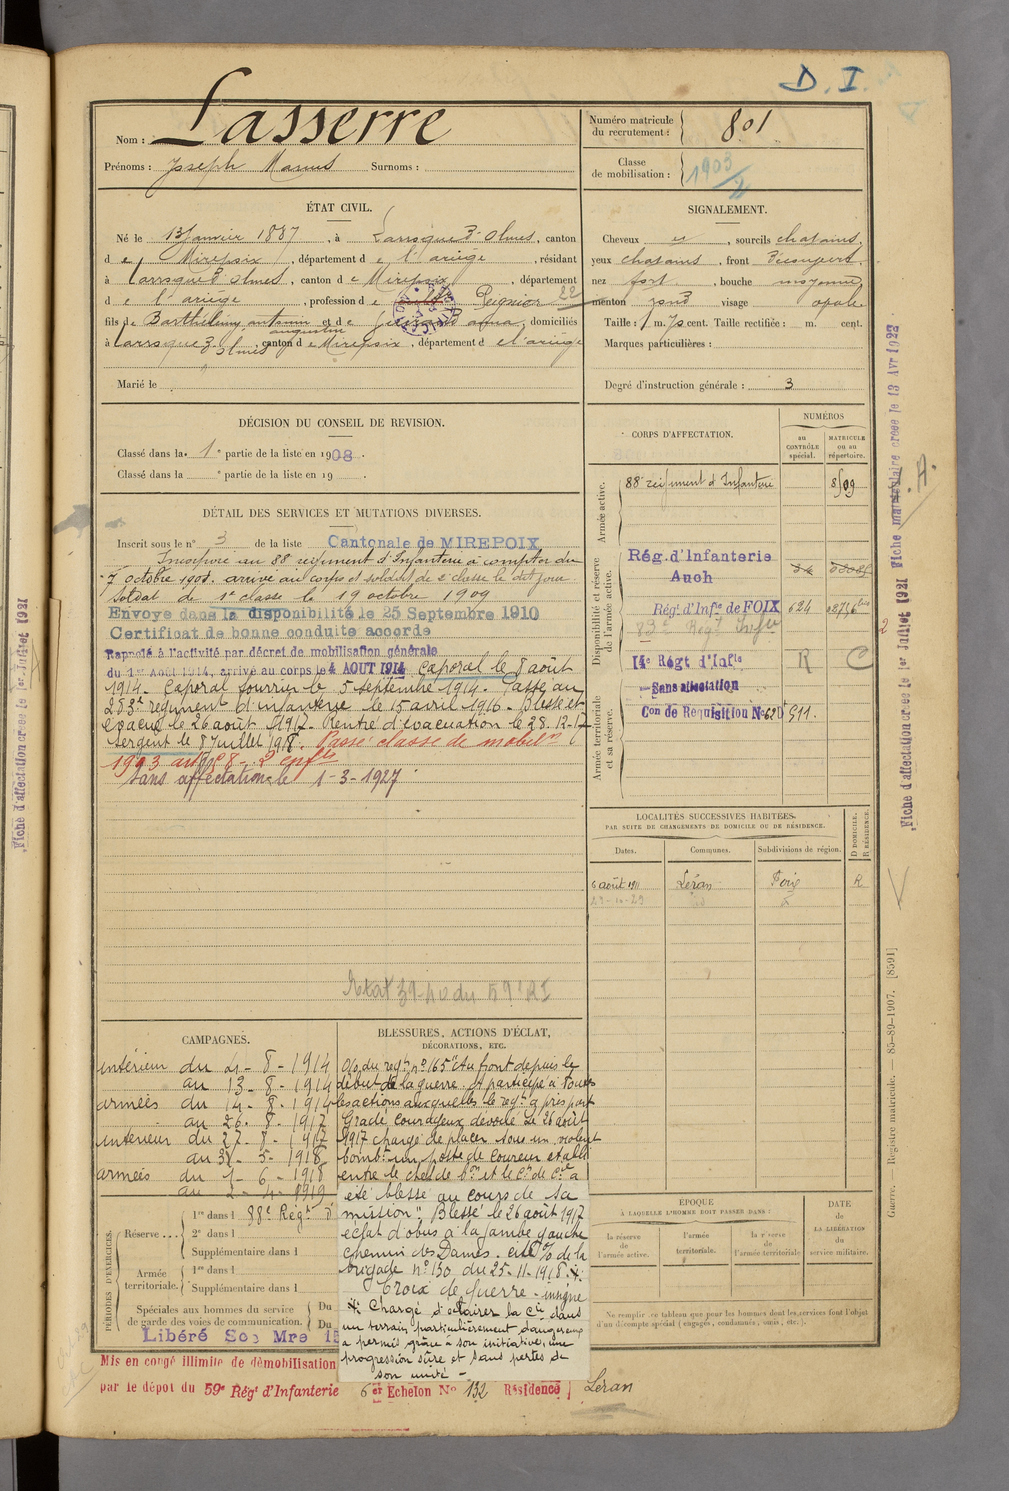 D. I.
Nom : Lasserre
Prénoms : Joseph Marius Surnoms :
Numéro matricule du recrutement : 801
Classe de mobilisation : 1903/2
ÉTAT CIVIL.
Né le 13 Janvier 1887, à Laroque d'Olmes, canton
d e Mirepoix, département d e l'ariège, résidant
à Laroque d'olmes, canton d e Mirepoix, département
d e l'ariège, profession d e Peignier 22
fils de Barthélemy antonin et de anna, domiciliés
augustin
à Laroque d'olmes, canton d e Mirepoix, département d e l'ariège
Marié le
SIGNALEMENT.
Cheveux et, sourcils chatains,
yeux chatains, front Découvert,
nez fort, bouche moyenne,
menton rond visage ovale
Taille : 1 m. 70 cent. Taille rectifiée : m. cent.
Marques particulières :
Degré d'instruction générale : 3
DÉCISION DU CONSEIL DE REVISION.
Classé dans la 1e partie de la liste en 1908.
Classé dans la e partie de la liste en 19 .
DÉTAIL DES SERVICES ET MUTATIONS DIVERSES.
Inscrit sous le n° 3 de la liste Cantonale de MIREPOIX
Incorporé au 88e régiment d'Infanterie à compter du
7 octobre 1908. arrivé au corps et soldat de 2e classe le dit jour
Soldat de 1e classe le 19 octobre 1909
Envoyé dans la disponibilité le 25 Septembre 1910
Certificat de bonne conduite accordé
Rappelé à l'activité par décret de mobilisation générale
du 1er Août 1914, arrivé au corps le 4 AOUT 1914 Caporal le 8 août
1914. Caporal fourrier le 5 septembre 1914. Passé au
283e régiment d'infanterie le 15 avril 1916. Blessé et
évacué le 26 août 1917. Rentré d'évacuation le 28-12-17
Sergent le 8 Juillet 1918. Passé classe de mobil on
1903 art 58- 2 enfts
Sans affectation le 1-3-1927
Etat 39-40 du 59e RI
CORPS D'AFFECTATION.
NUMÉROS
au CONTRÔLE spécial.
MATRICULE ou au répertoire.
Armée active.
88e régiment d'Infanterie 8509
Disponibilité et réserve de l'armée active.
Rég. d'Infanterie
Auch
Régt d'Infie de FOIX 624
83e Régt Infie
14e Régt d'Infie R C
Armée territoriale et sa réserve.
Sans affectation
Con de Requisition No 62D 511.
LOCALITÉS SUCCESSIVES HABITÉES.
PAR SUITE DE CHANGEMENTS DE DOMICILE OU DE RÉSIDENCE.
Dates. Communes. Subdivisions de région. D DOMICILE. R RÉSIDENCE.
6 août 1911 Léran Foix R
CAMPAGNES.
intérieur du 4- 8- 1914
au 13- 8- 1914
armées du 14- 8- 1914
au 26- 8- 1917
intérieur du 27- 8- 1917
au 31- 5- 1918
armées du 1- 6- 1918
au 2- 4- 1919
BLESSURES, ACTIONS D'ÉCLAT,
DÉCORATIONS, ETC.
O/o du regt no 165 "Au front depuis le
début de la guerre. A participé à toutes
les actions auxquelles le regt a pris part
Gradé courageux dévoué le 26 août
1917 chargé de placer sous un violent
bombt un poste de coureur établi
entre le chef de bon et le Ct de Cie a
été blessé au cours de sa
mission". Blessé le 26 août 1917
éclat d'obus à la jambe gauche
Chemin des Dames. cité % de la
brigade no 130 du 25-11-1918.
Croix de guerre - insigne
Chargé d'éclairer la Cie dans
un terrain particulièrement dangereux
a permis grâce à son initiative, une
progression sûre et sans pertes de
son unité -
PÉRIODES D'EXERCICES.
Réserve... 1re dans l 88e Régt d'
2e dans l
Supplémentaire dans l
Armée territoriale. 1re dans l
Supplémentaire dans l
Spéciales aux hommes du service de garde des voies de communication. Du
Du
Libéré Sce Mre
ÉPOQUE
À LAQUELLE L'HOMME DOIT PASSER DANS :
la réserve de l'armée active.
l'armée territoriale.
la réserve de l'armée territoriale
DATE de LA LIBÉRATION du service militaire.
Ne remplir ce tableau que pour les hommes dont les services font l'objet
d'un décompte spécial (engagés, condamnés, omis, etc.).
Mis en congé illimité de démobilisation
par le dépot du 59e Régt d'Infanterie 6 er Echelon No 132 Résidence Léran
Guerre. — Registre matricule. — 85-89-1907. [8591]
Fiche d'affectation créée le 1er Juillet 1921
Fiche matriculaire créée le 13 Avr 1922
Fiche d'affectation créée le 1er Juillet 1921